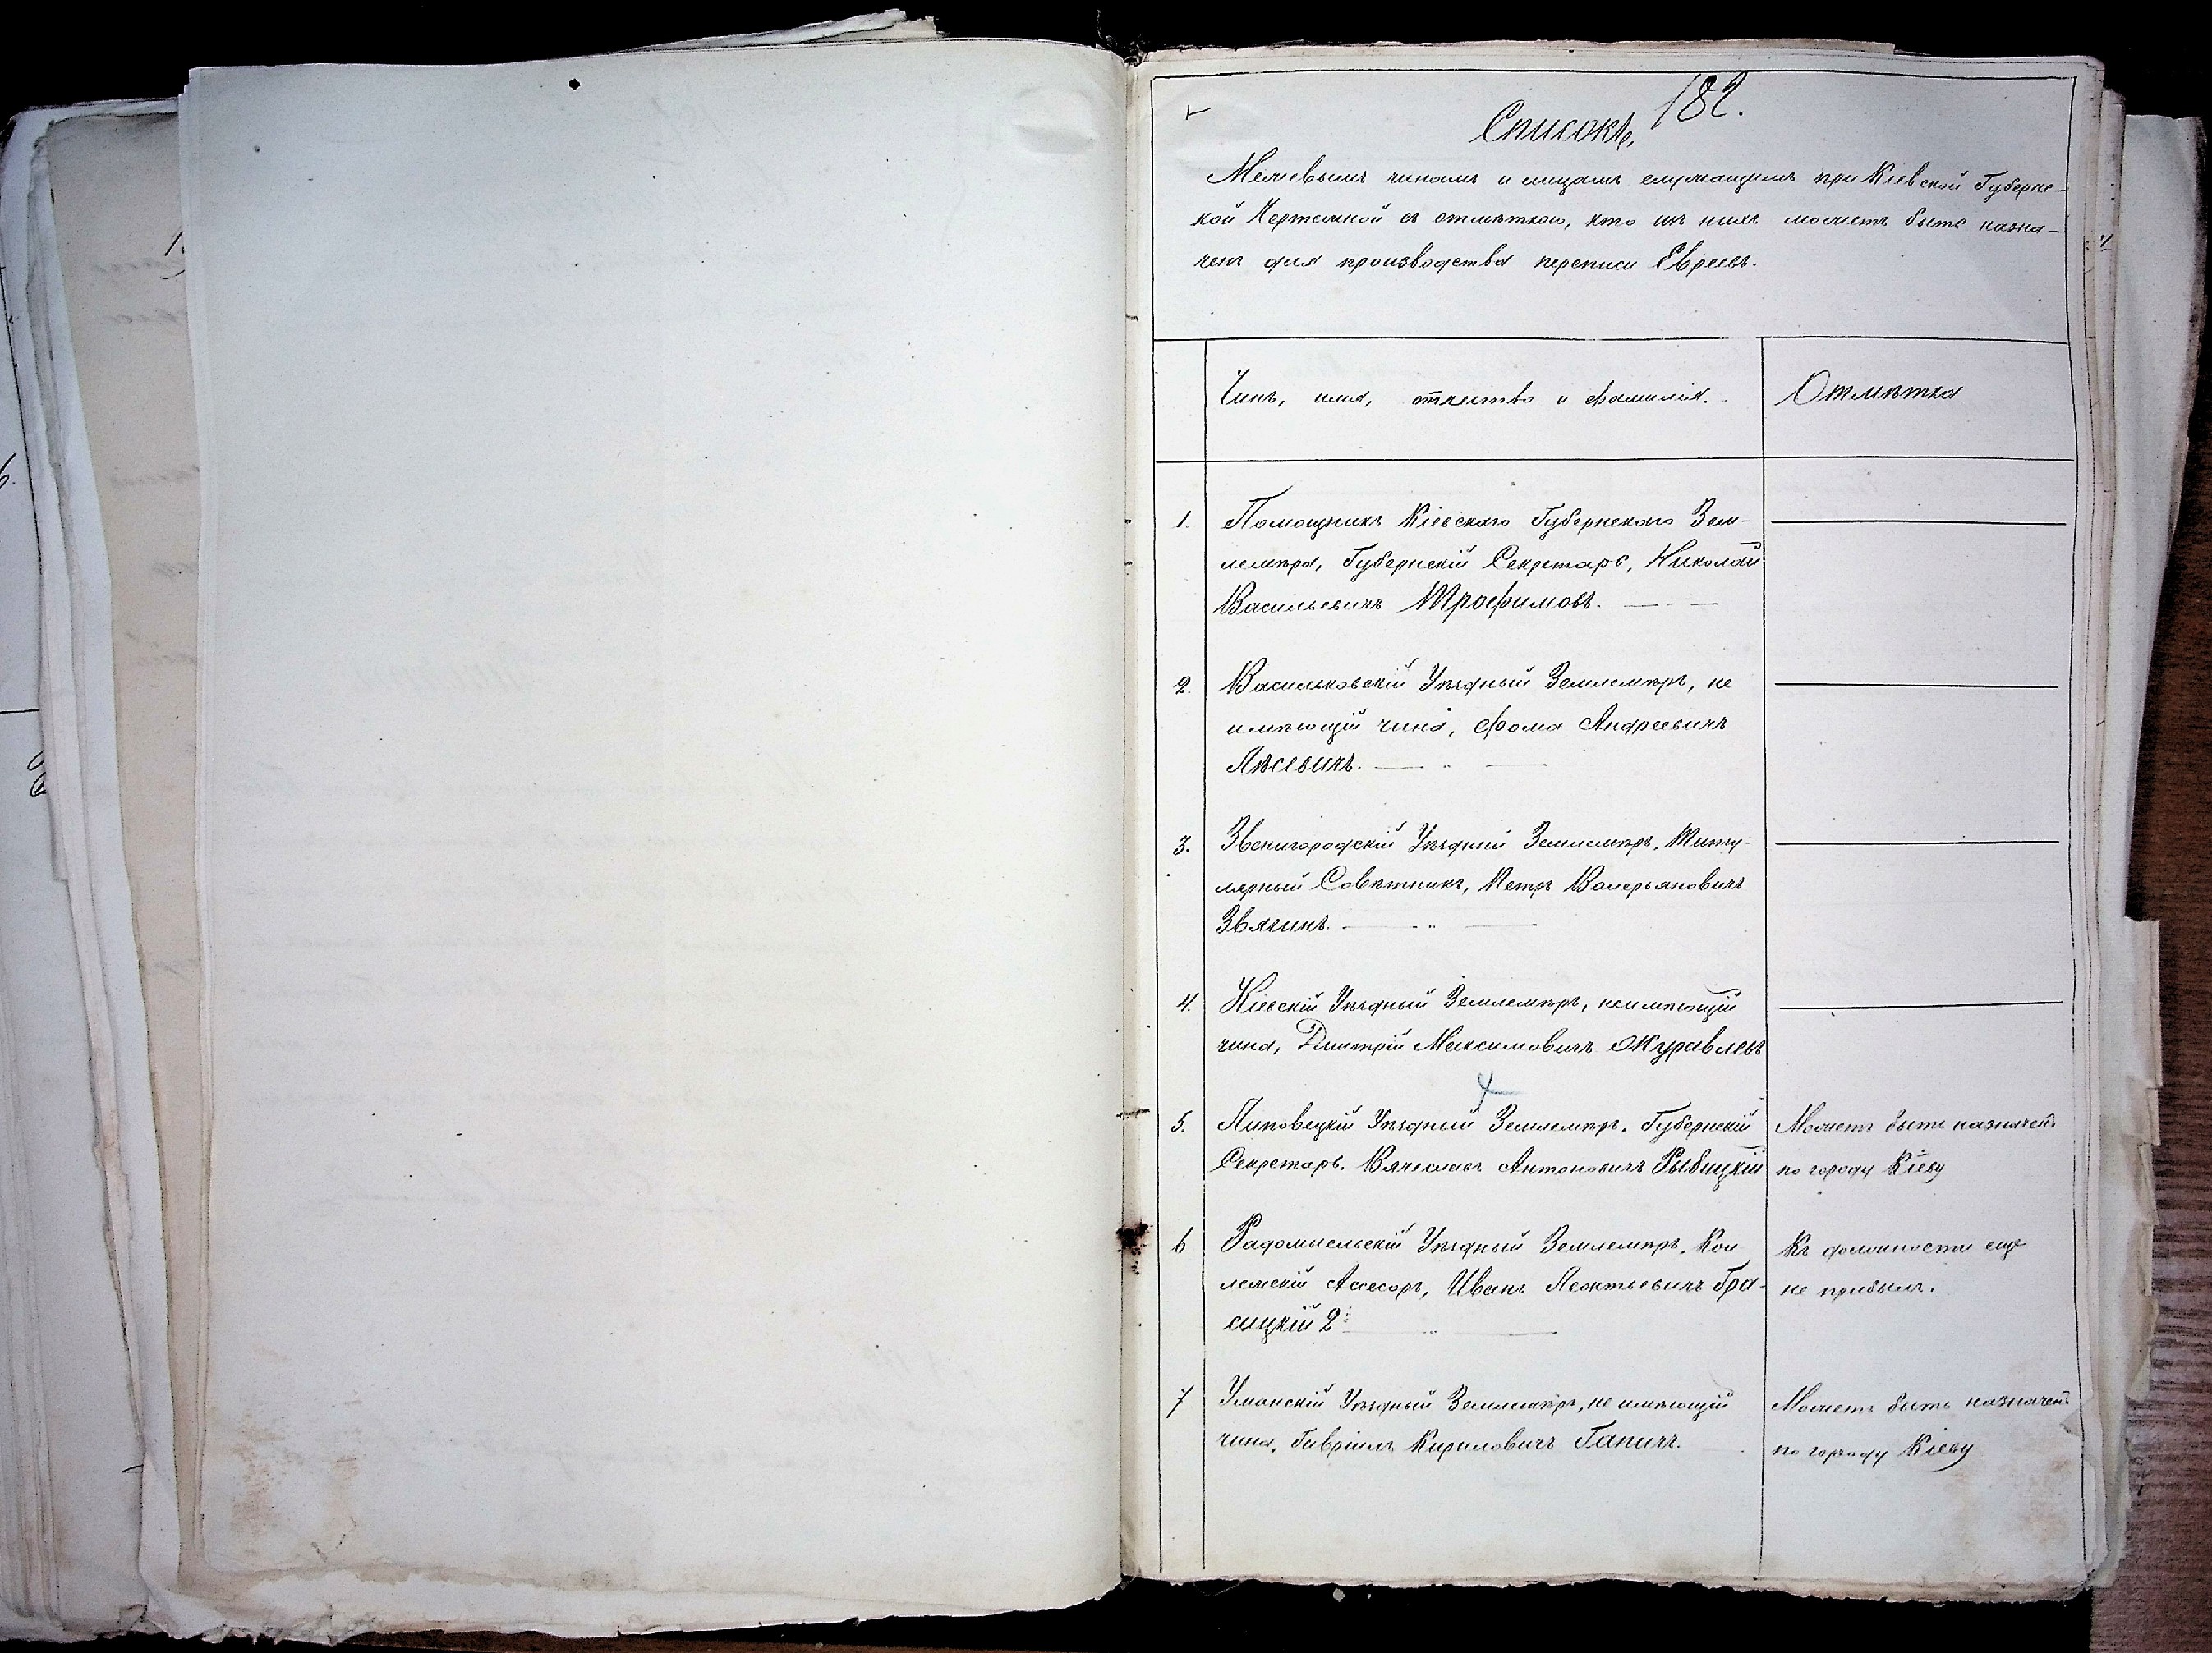 182.
Списокъ,
Межевымъ чинамъ и лицамъ служащимъ при Кіевской Губернс-
кой Чертежной съ отмѣткою, кто изъ нихъ можетъ быть назна-
ченъ для производства переписи Евреевъ.
Чинъ, имя, отчество и фамилія.
Отмѣтка
1. Помощникъ Кіевскаго Губернскаго Зем-
лемѣра, Губернскій Секретарь, Николай
Васильевичъ Трофимовъ.
2. Васильковскій Уѣздный Землемѣръ, не
имѣющій чина, Фома Андреевичъ
3. Звенигородскій Уѣздный Землемѣръ, Титу-
лярный Совѣтникъ, Петръ Валерьяновичъ
Звягинъ.
4. Кіевскій Уѣздный Землемѣръ, неимѣющій
чина, Дмитрій Максимовичъ Журавлевъ
5. Липовецкій Уѣздный Землемѣръ, Губернскій
Секретарь, Вячеславъ Антоновичъ Рыбицкій
Можетъ быть назначенъ
по городу Кіеву
6 Радомысльскій Уѣздный Землемѣръ, Кол
лежскій Асесоръ, Иванъ Леонтьевичъ Гра-
сицкій 2й
Къ должности еще
не прибылъ.
7 Уманскій Уѣздный Землемѣръ, не имѣющій
чина, Гавріилъ Кириловичъ Гапичъ.
Можетъ быть назначенъ
по городу Кіеву